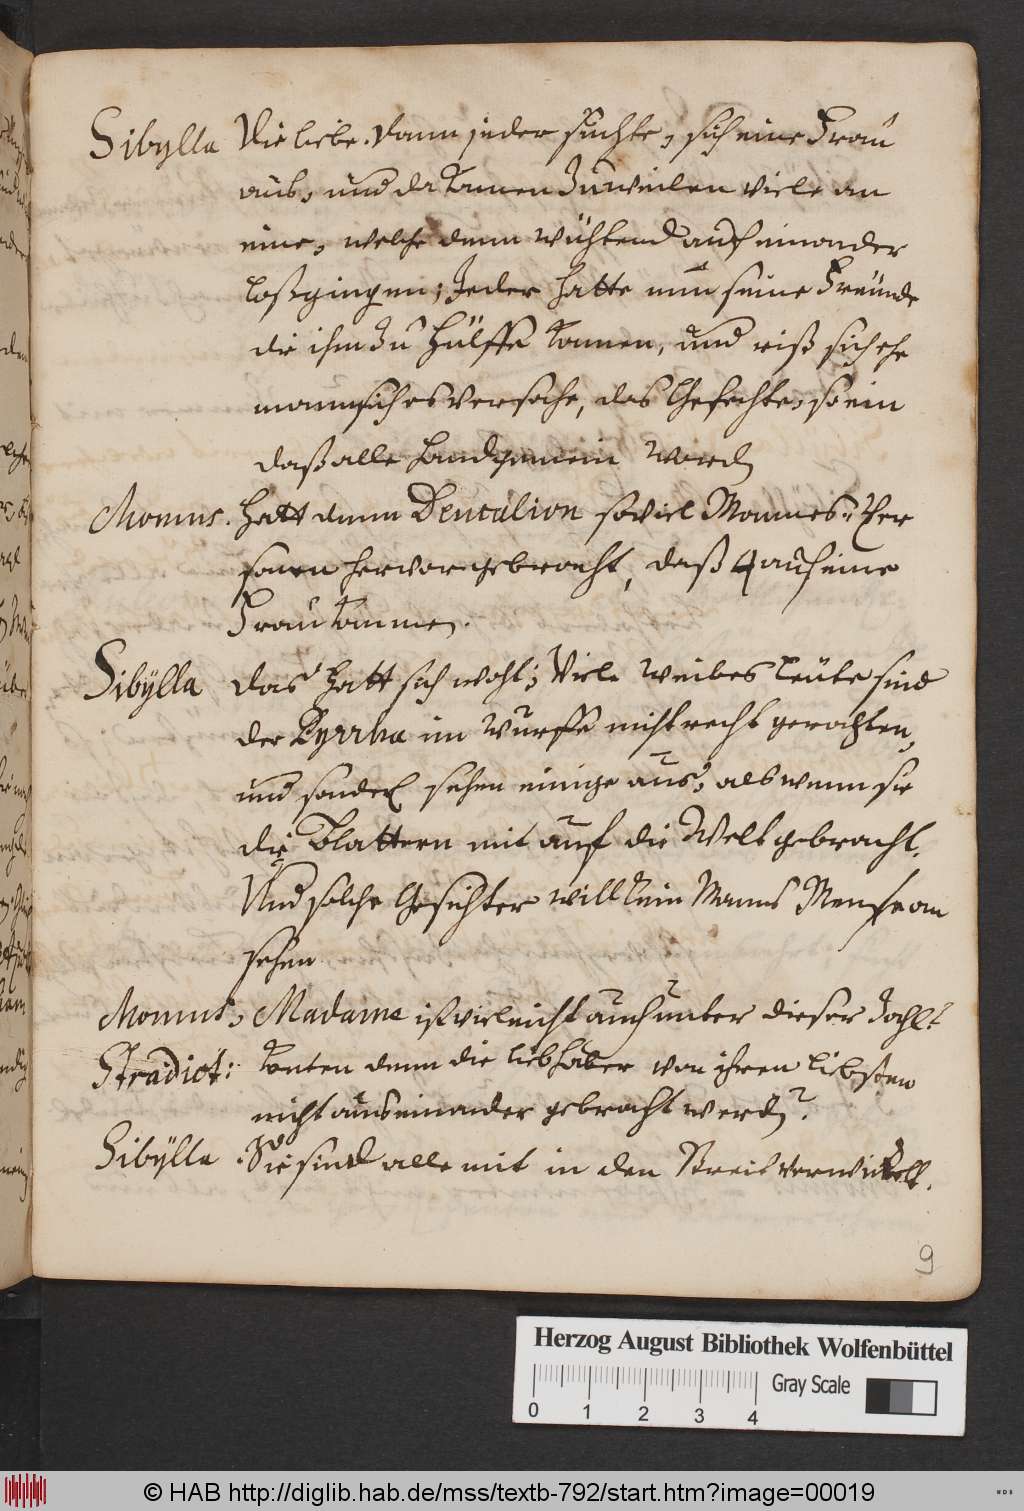 Sibylla Die liebe. Dann jeder suchte, sich eine Frau
aus, und da kamen zuweilen viele an
eine, welche denn wühtend auf einander
loßgingen; Jeder hatte nun seine Freunde
die ihm zu Hülffe kamen, und riß sich ehe
mann sichs versahe, das Gefechte, so ein
daß alle handgemein worden
Momus. Hatt denn Deucalion soviel Mannes-Per
sonen hervorgebracht, daß 4 auf eine
Frau kommen.
Sibÿlla das hatt sich wohl; Viele Weibes Leüte sind
der Pyrrha im Wurffe nicht recht gerahten,
und sehen einige aus, als wenn sie
die Blattern mit auf die Welt gebracht.
Und solche Gesichter will kein Manns Mensch an
sehen
Momus, Madame ist vieleicht auch unter dieser Zahl?
Stradict: Konten denn die liebhaber von ihren liebsten
nicht aus einander gebracht werden?
Sibÿlla. Sie sind alle mit in den Streit verwickelt.
9
Herzog August Bibliothek Wolfenbüttel
Gray Scale
0 1 2 3 4
© HAB http://diglib.hab.de/mss/textb-792/start.htm?image=00019